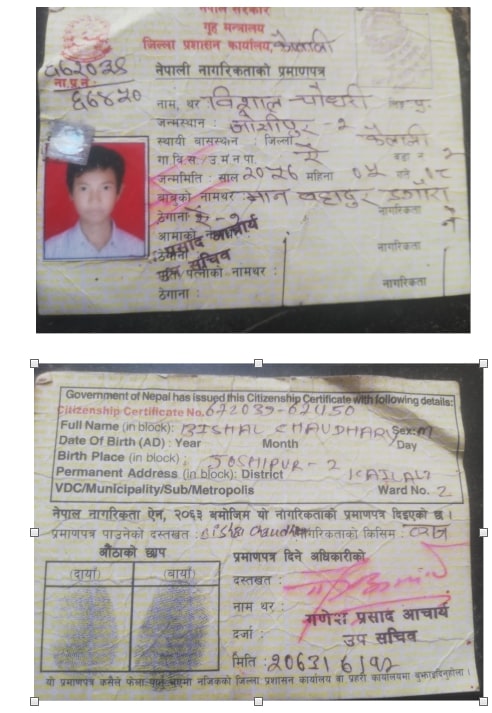 नेपाल सरकार
गृह मन्त्रालय
जिल्ला प्रशासन कार्यालय, कैलाली
ना.प्र.नं.
नेपाली नागरिकताको प्रमाणपत्र
नाम, थर विशाल चौधरी लिङ्ग पु.
जन्मस्थान : जोशीपुर - २
स्थायी बासस्थान : जिल्ला कैलाली
गा.वि.स./उ.म.न.पा. ऐ वडा नं २
जन्ममिति : साल महिना ०५ गते १८
बाबुको नामथर : मान बहादुर डगौरा
ठेगाना नागरिकता
आमाको
ठेगाना नागरिकता
प्रसाद आचार्य
सचिव
पत्नीको नामथर :
ठेगाना : नागरिकता
Government of Nepal has issued this Citizenship Certificate with following details:
Citizenship Certificate No.
Full Name (in block): BISHAL CHAUDHARY Sex: M
Date Of Birth (AD) : Year Month Day
Birth Place (in block) : JOSHIPUR - 2
Permanent Address (in block): District KAILALI
VDC/Municipality/Sub/Metropolis Ward No. 2
नेपाल नागरिकता ऐन, २०६३ बमोजिम यो नागरिकताको प्रमाणपत्र दिइएको छ ।
प्रमाणपत्र पाउनेको दस्तखत : Bishal Chaudhary नागरिकताको किसिम : वंशज
औंठाको छाप प्रमाणपत्र दिने अधिकारीको
(दायाँ) (बायाँ) दस्तखत :
नाम थर : गणेश प्रसाद आचार्य
दर्जा : उप सचिव
मिति : 2063/6/12
यो प्रमाणपत्र कसैले फेला पारे नजिकको जिल्ला प्रशासन कार्यालय वा प्रहरी कार्यालयमा बुझाइदिनुहोला ।